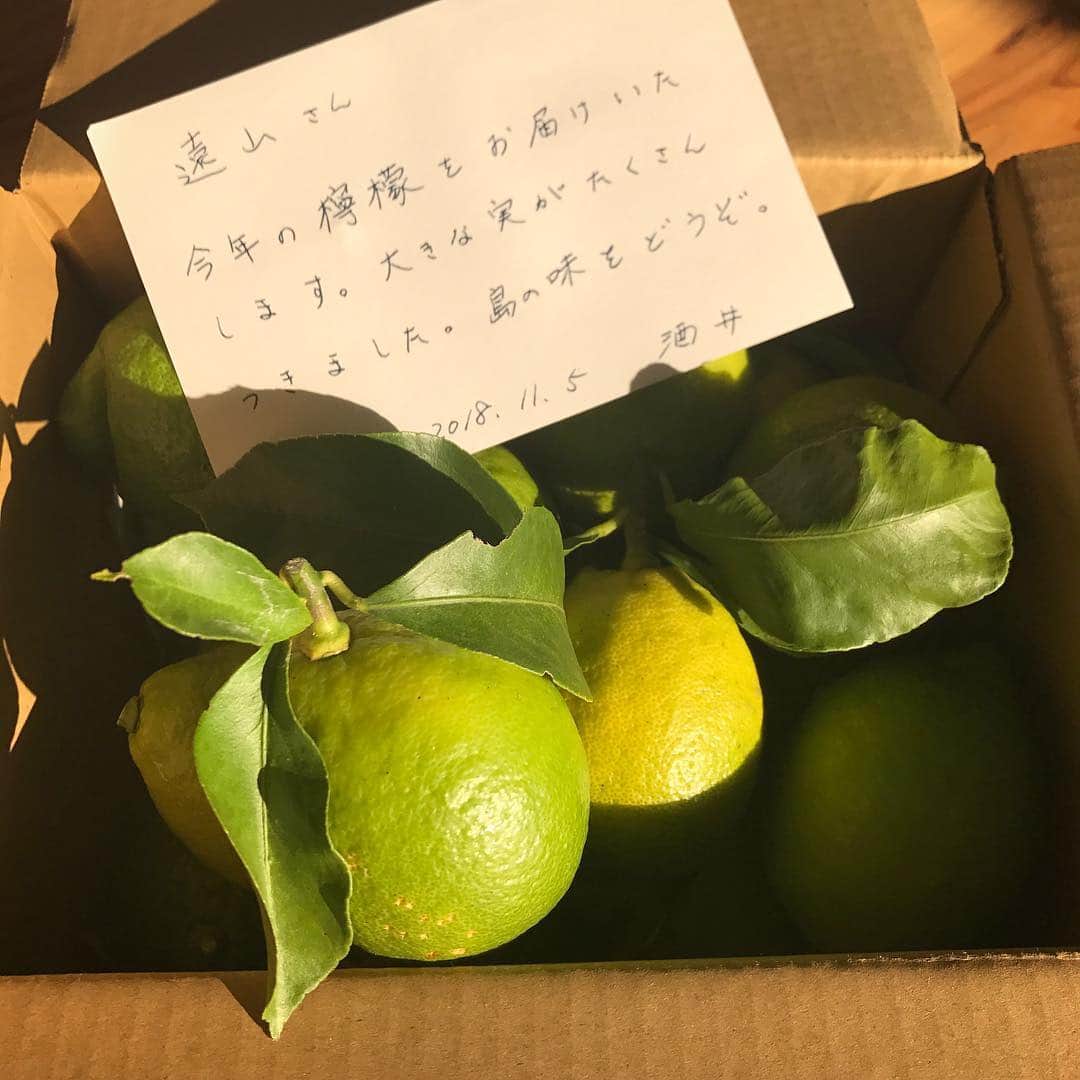 遠山さん
今年の檸檬をお届けいた
します。大きな実がたくさん
つきました。島の味をどうぞ。
2018.11.5 酒井